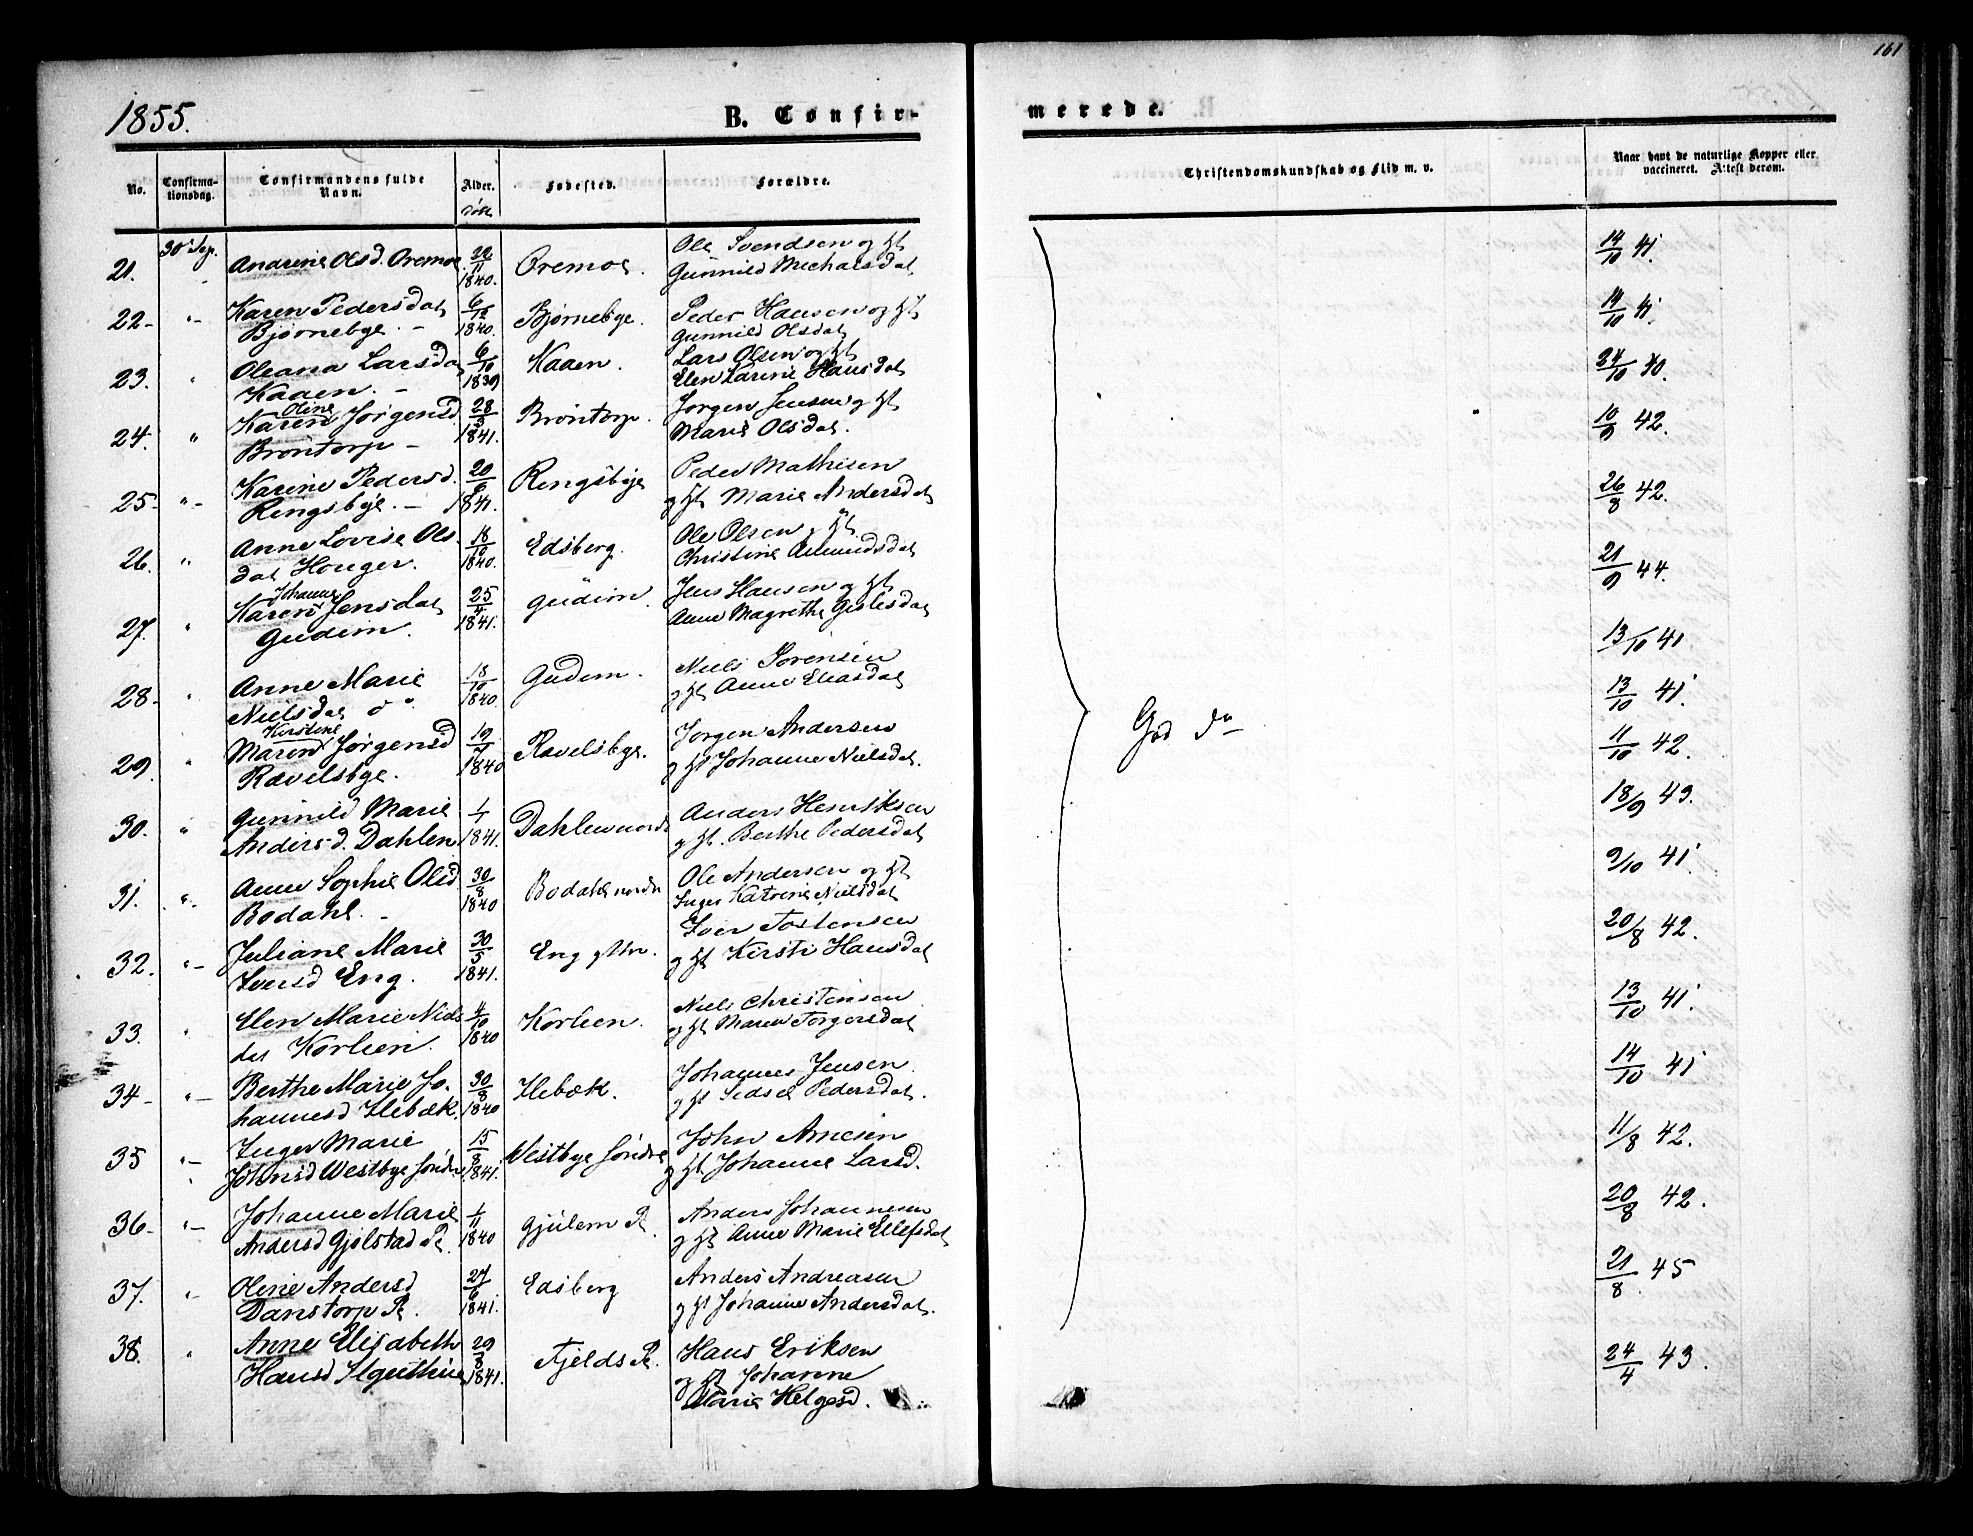 161
1855.
B. Confir-
merede.
No.
Confirma-
tionsdag.
Confirmandens fulde
Navn.
Alder.
Fødested.
Forældre.
Christendomskundskab og Flid m. v.
Naar havt de naturlige Kopper eller
vaccineret. Attest derom.
21. 30 Sep. Andrine Olsd. Oremoe 22/11 1840. Oremoe. Ole Svendsen og Hst
Gunnild Michalsdat 14/10 41.
22 - " - Karen Pedersdat 6/12 1840. Bjørnebye. Peder Hansen og Hst
Bjørnebye. - Gunnild Olsdat 14/10 41.
23. " Oleana Larsda 6/10 1839 Kaaen. Lars Olsen og Hst
Kaaen. - Elen Karine Hansdat 24/10 40.
24. " Karen Oline Jørgensd 28/3 1841. Brøntorp. Jørgen Jensen og Hst
Brøntorp - Marie Olsdat. 10/9 42.
25 - " - Karine Pedersd. 20/6 1841. Rengsbye Peder Mathisen
Rengsbye. - og Hst Marie Andersdat 26/8 42.
26. " Anne Lovise Ols- 18/10 1840. Edsberg. Ole Olsen og Hst
dat Houger. Christine Amundsdat 21/9 44.
27. " Karen Johanne Jensdat 25/4 1841. Gudim. Jens Hansen og Hst
Gudim. Anne Magrethe Gislesdat 13/10 41
28 - " Anne Marie 18/10 1840 Gudem. Niels Sørensen
Nielsdat og Hst Anne Eliasdat 13/10 41.
29. " Maren Kirstine Jørgensd 19/7 1840 Ravelsbye. Jørgen Andersen
Rævelsbye. og Hst Johanne Nielsdat. 11/10 42.
30. " Gunnild Marie 1/1 1841. Dahlen nordr Anders Henriksen
Andersd. Dahlen og Hst. Berthe Pedersdat 18/9 43.
31. " - Anne Sophie Olsd 30/8 1840 Bodahl nordr Ole Andersen og Hst
Bodahl. - Inger Katrine Nielsdat 9/10 41.
32. " - Juliane Marie 30/5 1841. Eng yttr. Iver Tostensen
Iversd Eng. og Hst Kirsti Hansdat 20/8 42.
33. " Elen Marie Niels 4/10 1840 Korlien. Niels Christensen
dat Korlien. og Hst Maren Torgersdat 13/10 41.
34 - " - Berthe Marie Jo- 30/8 1840 Ilebæk. Johannes Jensen.
hannesd Ilebæk. og Hst Sedsel Pedersdat. 14/10 41
35 " - Inger Marie 15/8 1841. Westbye søndre John Arnesen
Johnsd Westbye søndre og Hst Johanne Larsd. 11/8 42.
36 - " - Johanne Marie 1/11 1840 Gjulem R. Anders Johannesen
Andersd Gjølstad R. og Hst Anne Marie Ellefsdat 20/8 42.
37. " - Oline Andersd 27/6 1841. Edsberg Anders Andreasen
Danstorp R. og Hst Johanne Andersdat. 21/8. 45
38. " Anne Elisabeth 29/8 1841. Fjelds R. Hans Eriksen
Hansd og Hst Johanne
Marie Helgesd. 24/4 43.
God